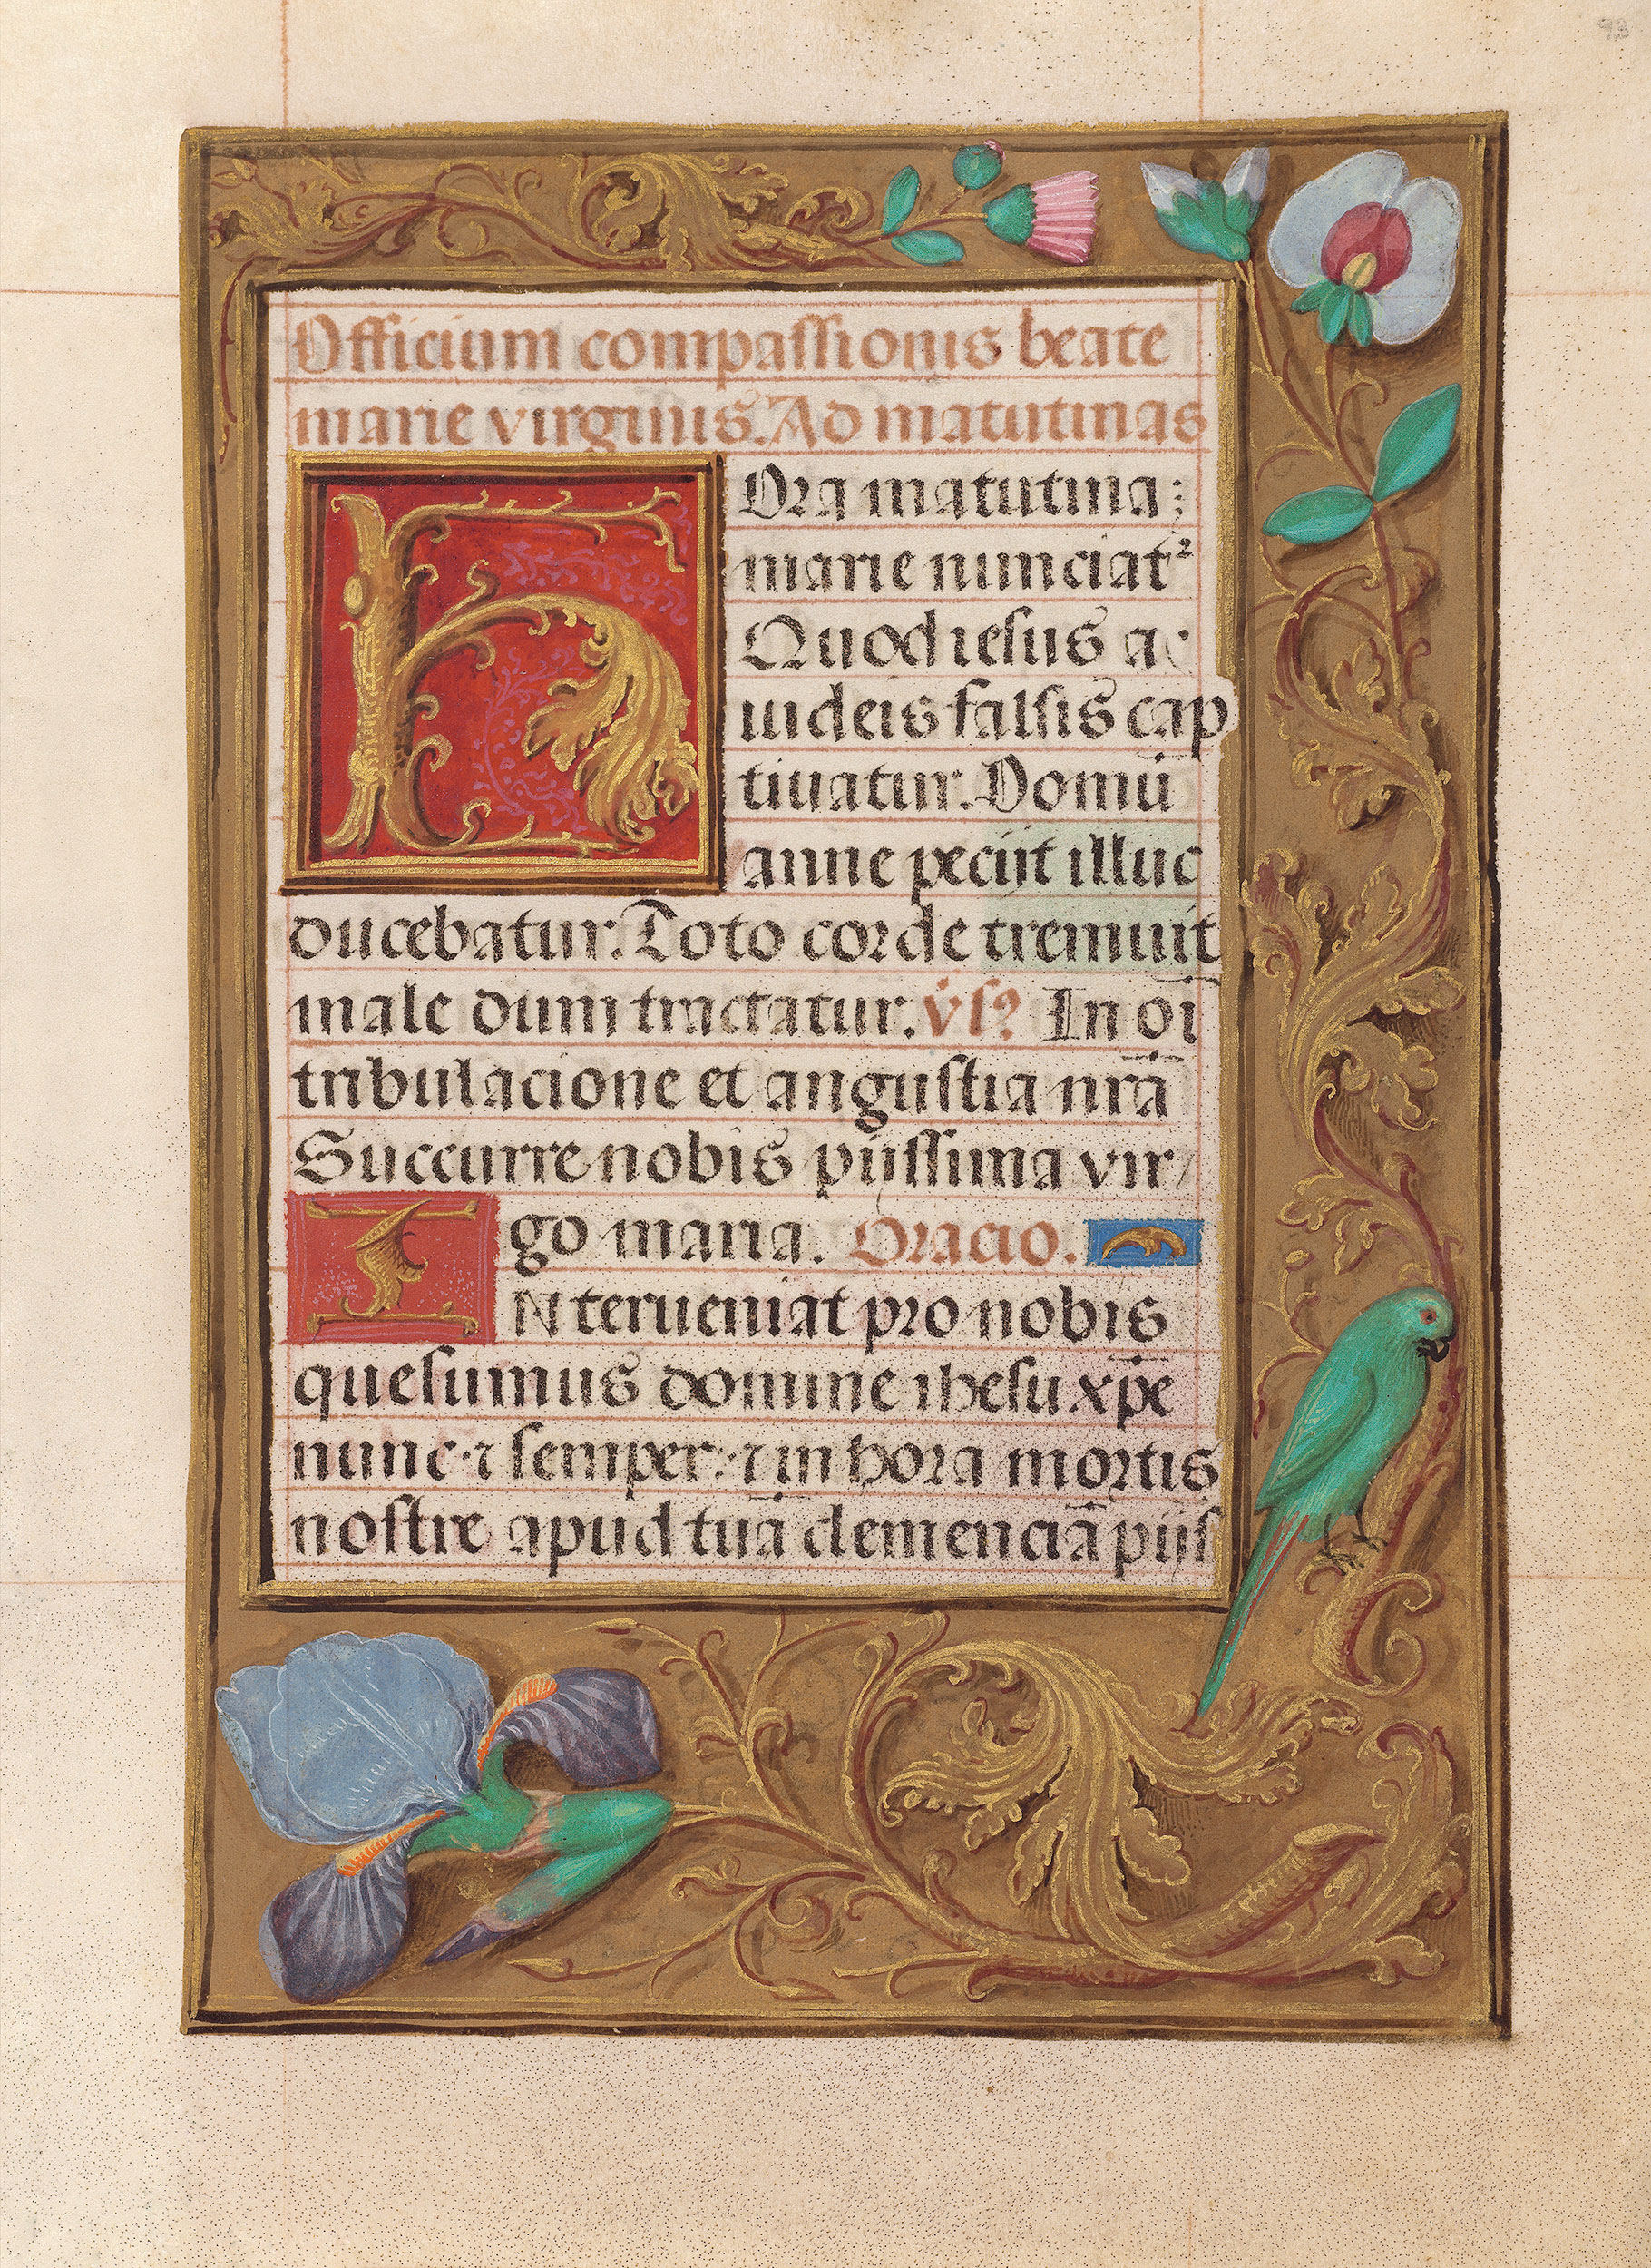 92
Officium compassionis beate
marie virginis. Ad matutinas
HOra matutina:
marie nunciat²
Quod iesus a
iudeis falsis cap
tiuatur. Domū
anne peciit illuc
ducebatur. Toto corde tremuit
male dum tractatur. v̇s? In oı̄
tribulacione et angustia nrā
Succurre nobis piissima vir/
go maria. Oracio.
INterueniat pro nobis
quesumus domine ihesu xp̄e
nunc ⁊ semper: ⁊ in hora mortis
nostre apud tuā clemenciā piis